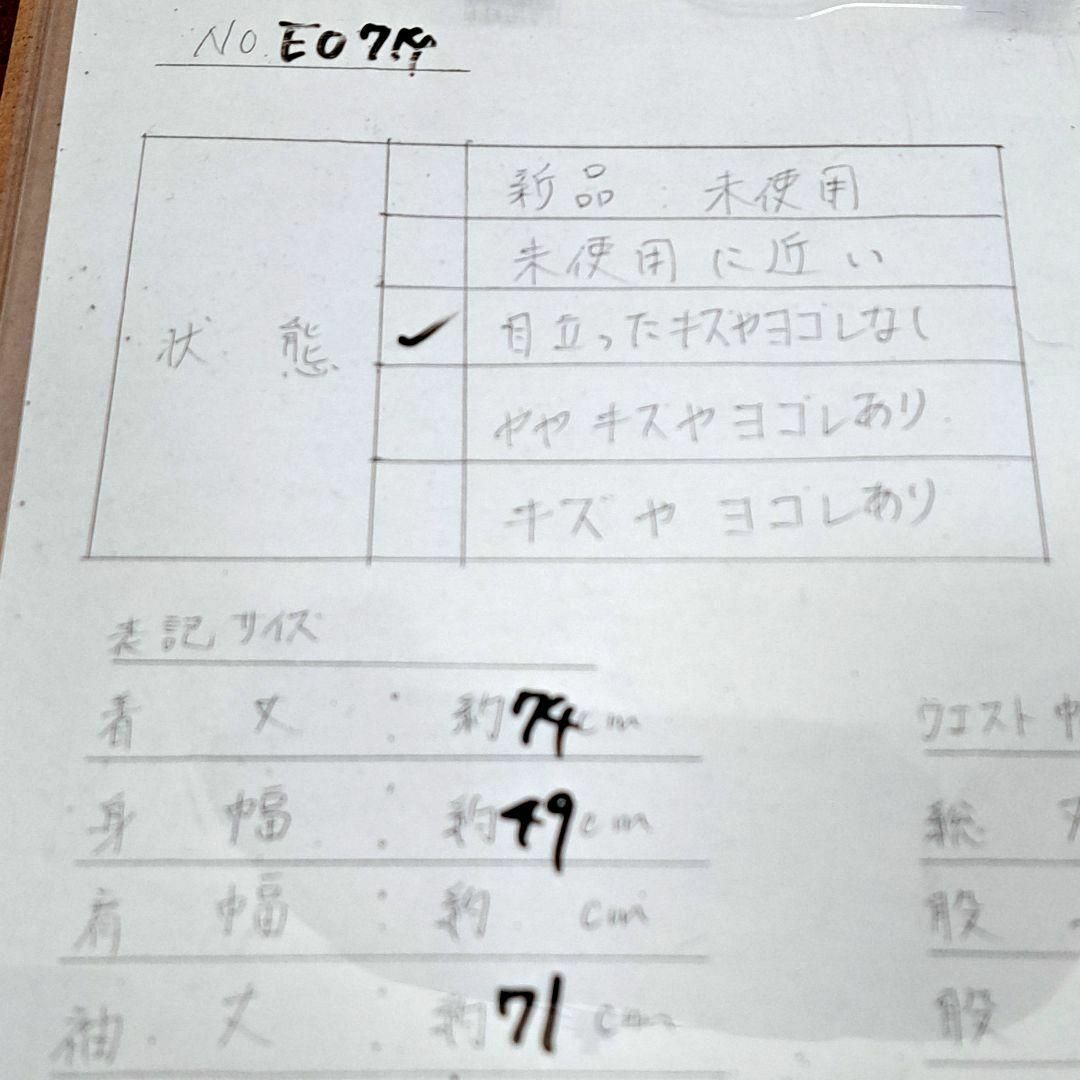 NO. E07
状態
新品 未使用
未使用に近い
✓ 目立ったキズやヨゴレなし
ややキズやヨゴレあり
キズやヨゴレあり
表記サイズ
着丈:約74cm
ウエスト
身幅:約49cm
総
肩幅:約 cm
股
袖丈:約71cm
股